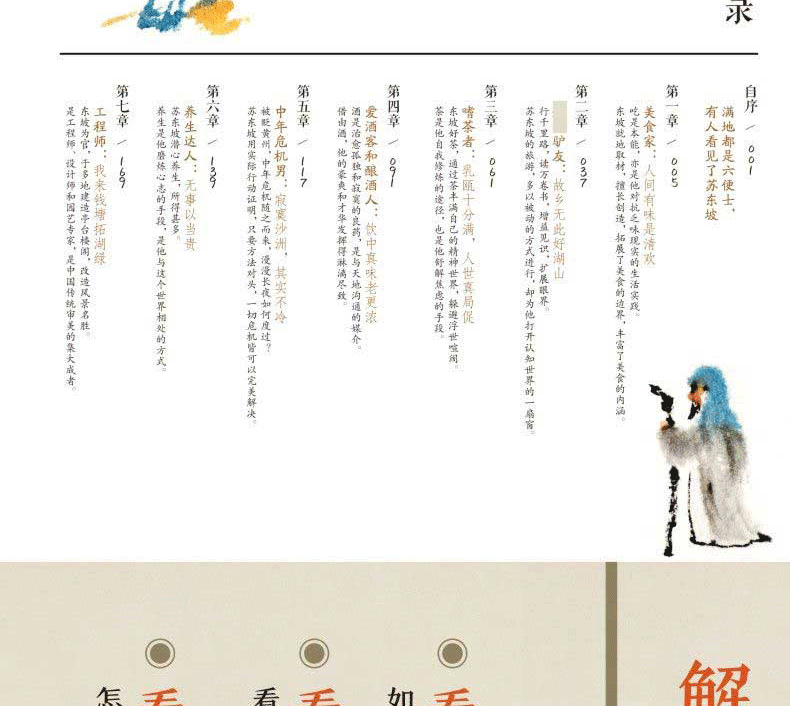 录
自序 / 001
满地都是六便士，
有人看见了苏东坡
第一章 / 005
美食家：人间有味是清欢
吃是本能，亦是他对抗乏味现实的生活实践。
东坡就地取材，擅长创造，拓展了美食的边界，丰富了美食的内涵。
第二章 / 037
驴友：故乡无此好湖山
行千里路，读万卷书，增益见识，扩展眼界。
苏东坡的旅游，多以被动的方式进行，却为他打开认知世界的一扇窗。
第三章 / 061
嗜茶者：乳瓯十分满，人世真局促
东坡好茶，通过茶丰满自己的精神世界，躲避浮世喧嚣。
茶是他自我修炼的途径，也是他舒解焦虑的手段。
第四章 / 091
爱酒客和酿酒人：饮中真味老更浓
酒是治愈孤独和寂寞的良药，是与天地沟通的媒介。
借由酒，他的豪爽和才华发挥得淋漓尽致。
第五章 / 117
中年危机男：寂寞沙洲，其实不冷
被贬黄州，中年危机随之而来，漫漫长夜如何度过？
苏东坡用实际行动证明，只要方法对头，一切危机皆可以完美解决。
第六章 / 139
养生达人：无事以当贵
苏东坡潜心养生，所得甚多。
养生是他磨炼心志的手段，是他与这个世界相处的方式。
第七章 / 169
工程师：我来钱塘拓湖绿
东坡为官，于多地建造亭台楼阁，改造风景名胜。
是工程师、设计师和园艺专家，是中国传统审美的集大成者。
解
看
如
看
看
看
怎